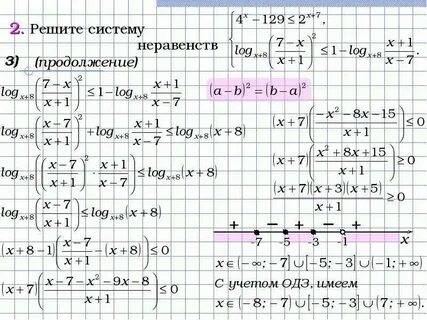 2. Решите систему
неравенств
{ 4^x − 129 ≤ 2^(x+7),
log_(x+8) ((7−x)/(x+1))² ≤ 1 − log_(x+8) (x+1)/(x−7).
3) (продолжение)
log_(x+8) ((7−x)/(x+1))² ≤ 1 − log_(x+8) (x+1)/(x−7)
(a−b)² = (b−a)²
log_(x+8) ((x−7)/(x+1))² + log_(x+8) (x+1)/(x−7) ≤ log_(x+8) (x+8)
log_(x+8) (((x−7)/(x+1))² · (x+1)/(x−7)) ≤ log_(x+8) (x+8)
log_(x+8) ((x−7)/(x+1)) ≤ log_(x+8) (x+8)
(x+8−1)((x−7)/(x+1) − (x+8)) ≤ 0
(x+7)((x−7−x²−9x−8)/(x+1)) ≤ 0
(x+7)((−x²−8x−15)/(x+1)) ≤ 0
(x+7)((x²+8x+15)/(x+1)) ≥ 0
(x+7)(x+3)(x+5)/(x+1) ≥ 0
+ − + − +
-7 -5 -3 -1 x
x ∈ (−∞; −7] ∪ [−5; −3] ∪ (−1; +∞)
С учетом ОДЗ, имеем
x ∈ (−8; −7) ∪ [−5; −3] ∪ (7; +∞).